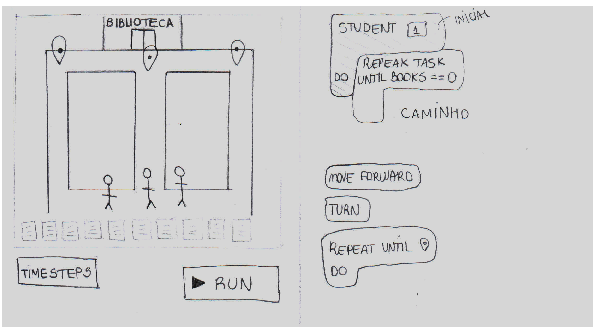 BIBLIOTECA
TIMESTEPS
RUN
STUDENT 1
INICIAL
REPEAK TASK
DO UNTIL BOOKS == 0
CAMINHO
MOVE FORWARD
TURN
REPEAT UNTIL
DO